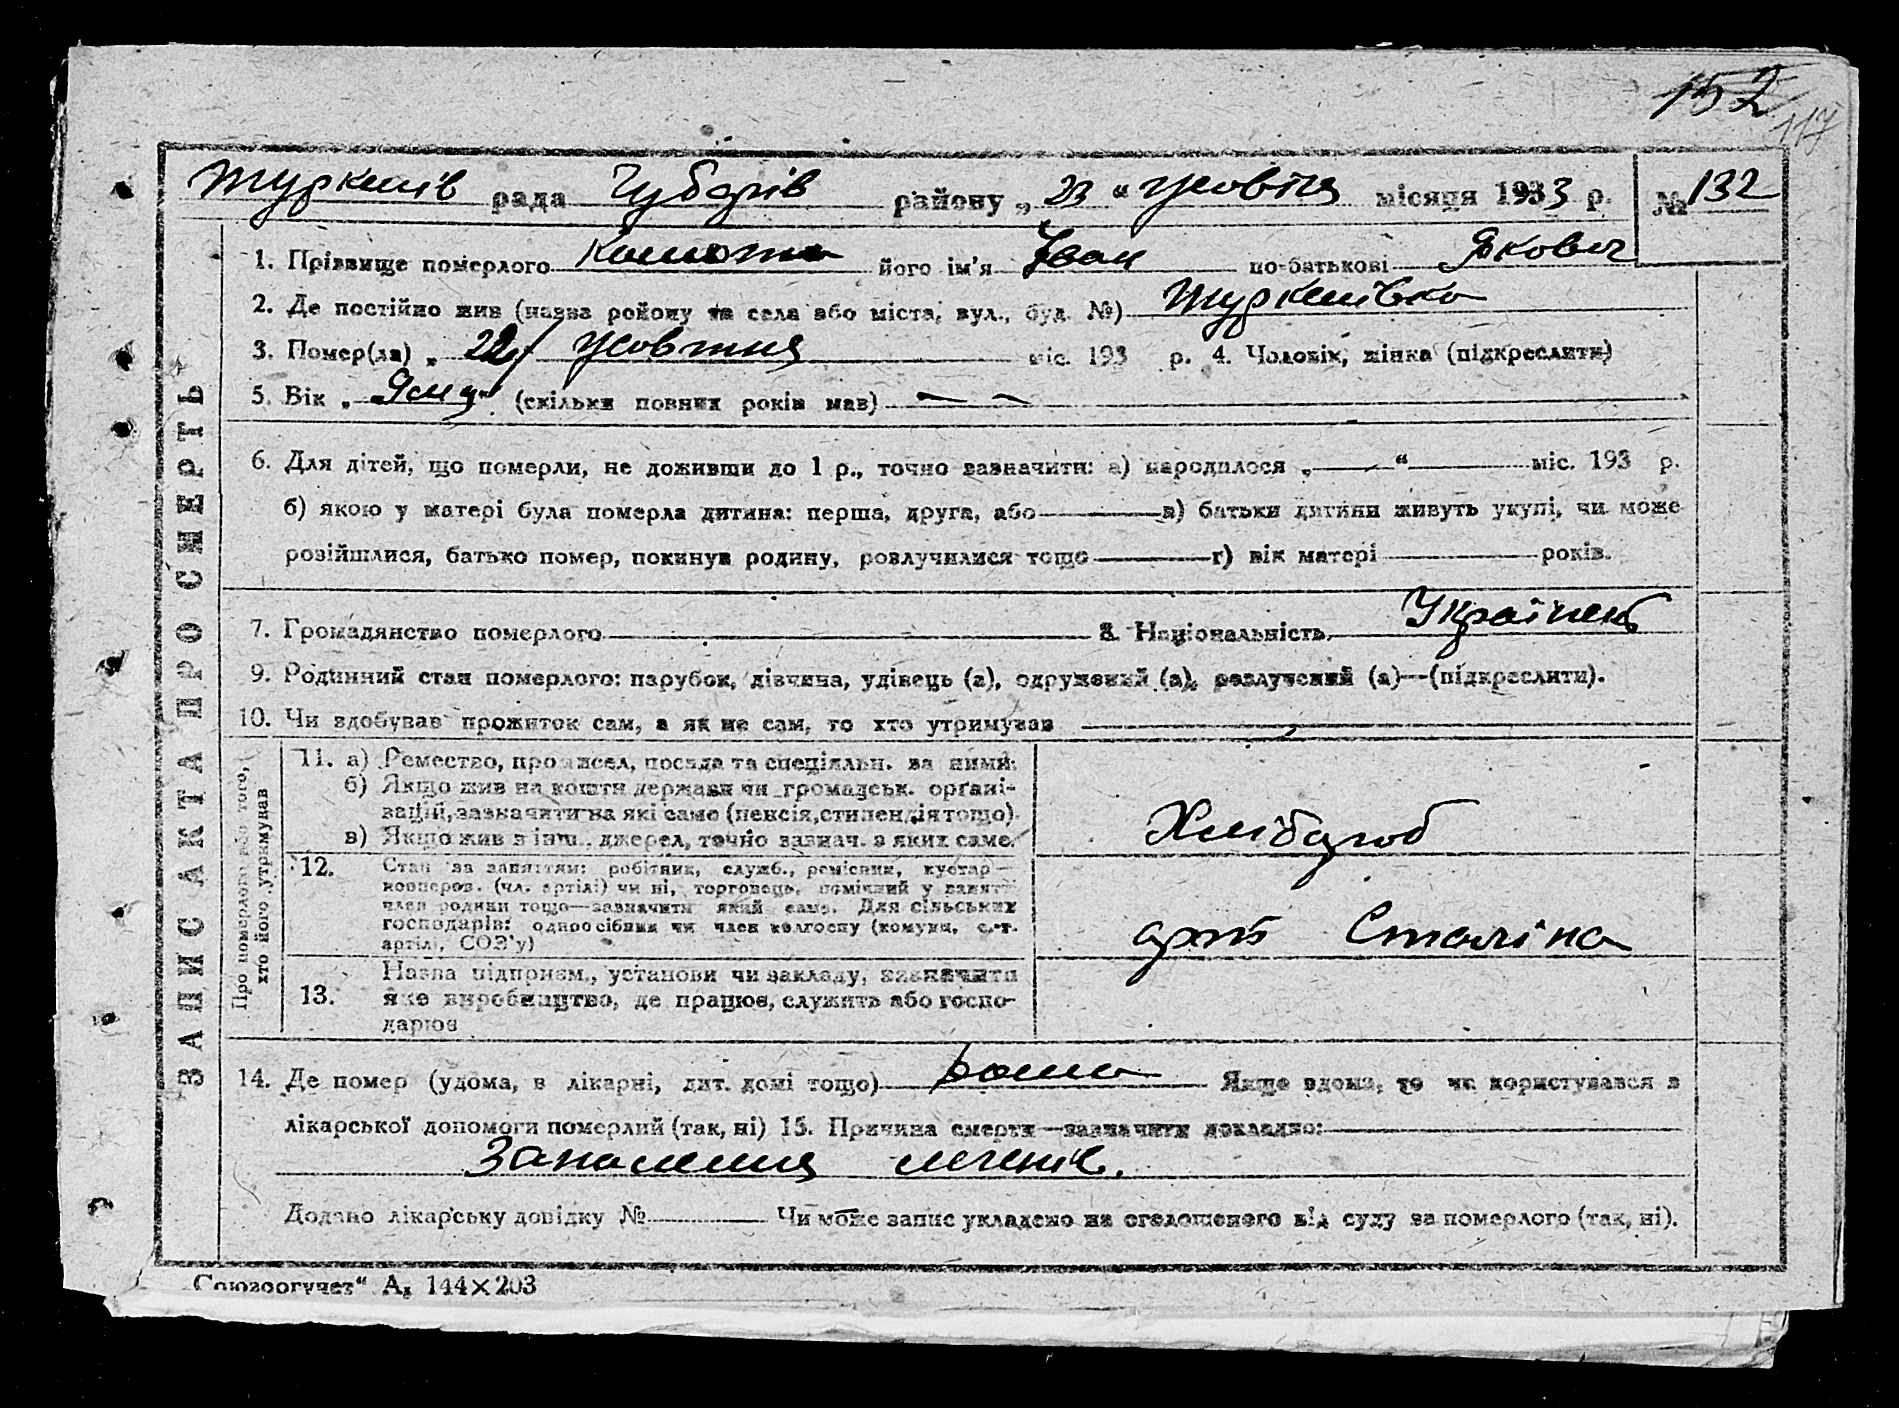 152
117
Журкенів рада Чубарів району „ 23 “ жовтня місяця 1933 р. № 132
1. Прізвище померлого його ім'я Іван по-батькові Якович
2. Де постійно жив (назва району та села або міста, вул., буд. №)
3. Помер(ла) „ 22 “ жовтня міс. 193 р. 4. Чоловік, жінка (підкреслити)
5. Вік „ “ (скільки повних років мав) — —
6. Для дітей, що померли, не доживши до 1 р., точно зазначити: а) народилося „ — “ — міс. 193 р.
б) якою у матері була померла дитина: перша, друга, або — в) батьки дитини живуть укупі, чи може
розійшлися, батько помер, покинув родину, розлучилися тощо — г) вік матері — років.
7. Громадянство померлого 8. Національність Українець
9. Родинний стан померлого: парубок, дівчина, удівець (а), одружений (а), розлучений (а)—(підкреслити).
10. Чи здобував прожиток сам, а як не сам, то хто утримував
ЗАПИС АКТА ПРО СМЕРТЬ
Про померлого або того, хто його утримував
11. а) Ремество, промисел, посада та спеціяльн. за ними:
б) Якщо жив на кошти держави чи громадськ. органі-
зацій, зазначити на які саме (пенсія, стипендія тощо).
в) Якщо жив з інш. джерел, точно зазнач. з яких саме.
Хлібороб
12. Стан за заняттям: робітник, служб., ремісник, кустар—
кооперов. (чл. артілі) чи ні, торговець, помічний у занятті
член родини тощо—зазначити який саме. Для сільських
господарів: одноосібник чи член колгоспу (комуни, с.-г.
артілі, СОЗ'у)
арт. Сталіна
13. Назва підприєм., установи чи закладу, зазначити
яке виробництво, де працює, служить або госпо-
дарює
14. Де помер (удома, в лікарні, дит. домі тощо) Дома Якщо вдома, то чи користувався з
лікарської допомоги померлий (так, ні) 15. Причина смерти—зазначити докладно:
Запалення легенів.
Додано лікарську довідку № Чи може запис укладено на оголошеного від суду за померлого (так, ні).
„Союзоргучет“ А₅ 144×203